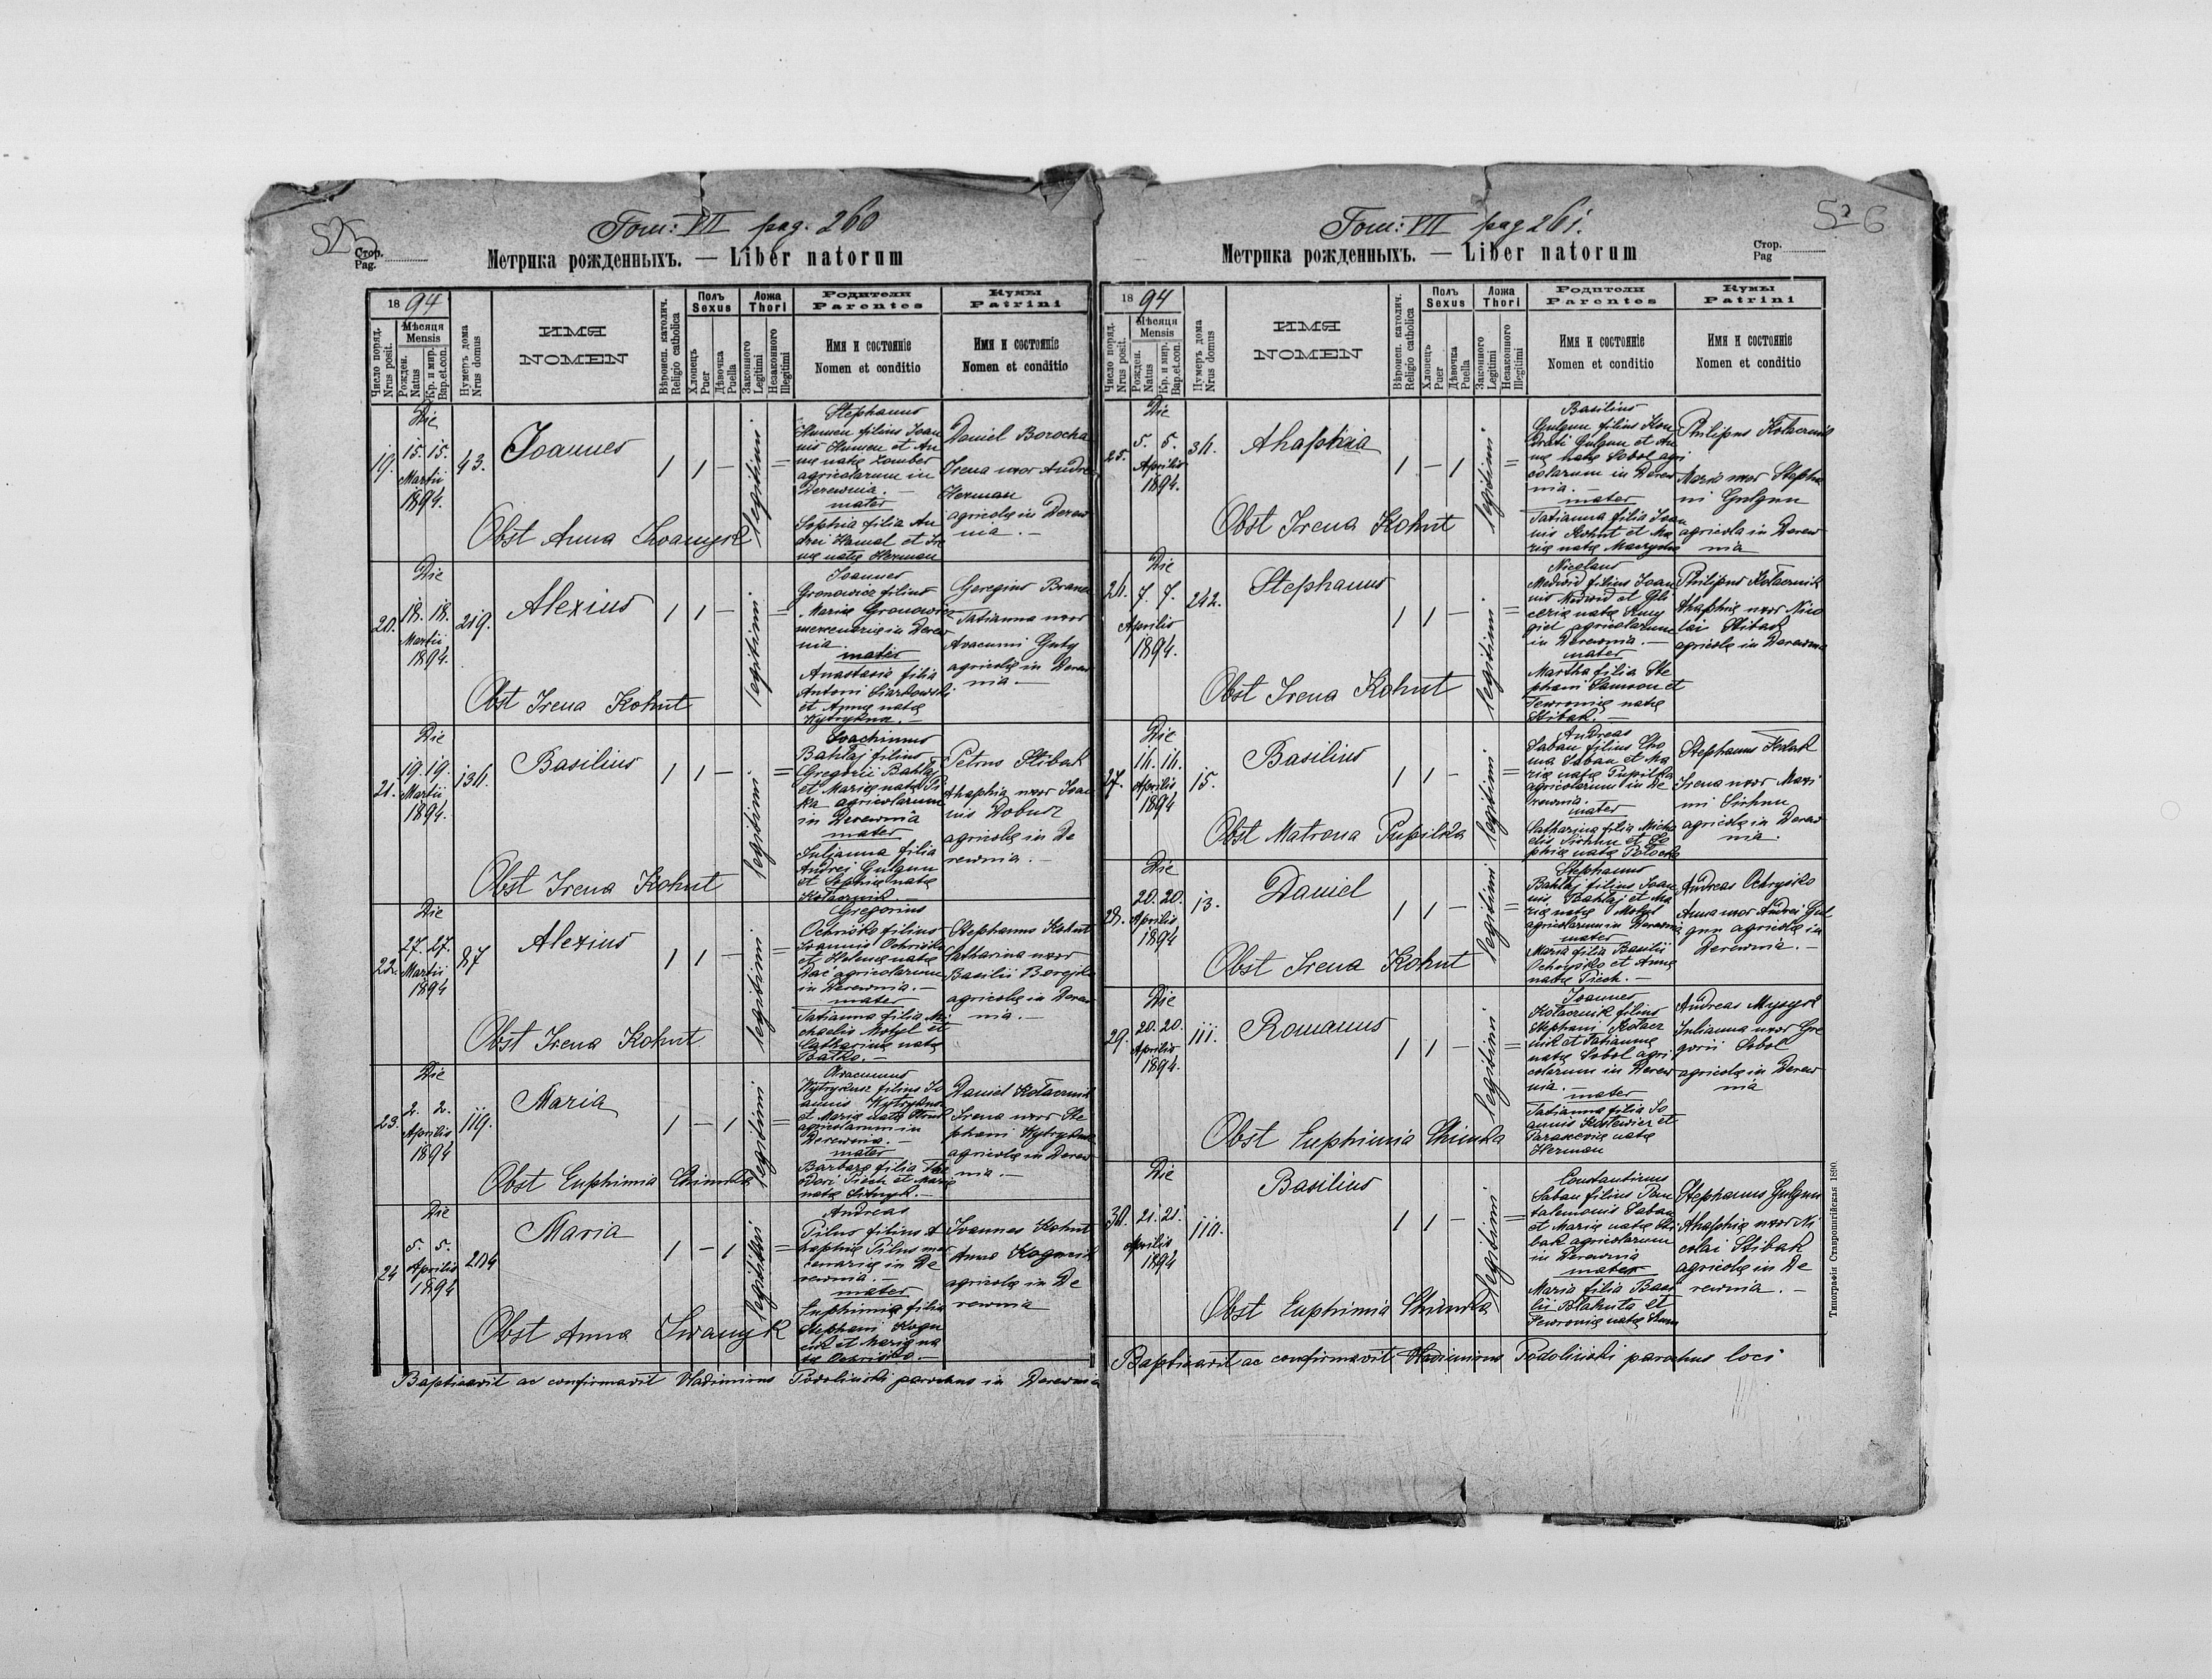 525
Tom: VII pag. 260
Стор.
Pag.
Метрика рожденныхъ. — Liber natorum
1894
Число поряд.
Nrus posit.
Мѣсяця
Mensis
Рожден.
Natus
Кр. и мир.
Bap. et con.
Нумеръ дома
Nrus domus
ИМЯ
NOMEN
Вѣроисп. католич.
Religio catholica
Полъ
Sexus
Хлопецъ
Puer
Дѣвочка
Puella
Ложа
Thori
Законного
Legitimi
Незаконного
Illegitimi
Родители
Parentes
Имя и состояніе
Nomen et conditio
Кумы
Patrini
Имя и состояніе
Nomen et conditio
19.
Die
15. 15.
Martii
1894.
43.
Joannes
Obst Anna Iwanyk
1 1 —
legitimi
=
Stephanus
Humen filius Joan
nis Humen et An
næ natæ Zomber
agricolarum in
Derewnia. —
mater
Sophia filia An
drei Hamal et Ire
næ natæ Herman
Daniel Borocha
Irena uxor Andre
Herman
agricolæ in Derew
nia. —
20.
Die
18. 18.
Martii
1894.
219.
Alexius
Obst Irena Kohut
1 1 —
legitimi
=
Joannes
Gronowicz filius
Mariæ Gronowicz
mercenariæ in Derew
nia
mater
Anastasia filia
Antoni Siarkowski
et Annæ natæ
Wytrykus. —
Georgius
Tatianna uxor
Avacumi Guty
agricolæ in Derew
nia. —
21.
Die
19. 19.
Martii
1894.
136.
Basilius
Obst Irena Kohut
1 1 —
legitimi
=
Joachimus
Bahlaj filius
Gregorii Bahlaj
et Mariæ natæ
agricolarum
in Derewnia
mater
Julianna filia
Andrei Gulgun
et Sophiæ natæ
Kołacznik. —
Petrus Stibak
Ahaphia uxor Joan
nis Dobusz
agricolæ in De
rewnia. —
22.
Die
27. 27.
Martii
1894
87
Alexius
Obst Irena Kohut
1 1 —
legitimi
=
Gregorius
Ochrisko filius
Joannis Ochrisko
et Helenæ natæ
Dac agricolarum
in Derewnia. —
mater
Tatianna filia Mi
chaelis Motyl et
Catharinæ natæ
Batko. —
Stephanus Kohut
Catharina uxor
Basilii
agricolæ in Derew
nia. —
23.
Die
2. 2.
Aprilis
1894
119.
Maria
Obst Euphimia Chimka
1 — 1
legitimi
=
Avacumus
Wytrykusz filius Jo
annis Wytrykus
et Mariæ natæ
agricolarum in
Derewnia. —
mater
Barbara filia
Piech et Mariæ
natæ Sitnyk. —
Daniel Kołacznik
Irena uxor Ste
phani Wytrykus
agricolæ in Derew
nia. —
24
Die
5. 5.
Aprilis
1894
204
Maria
Obst Anna Iwanyk
1 — 1
legitimi
=
Andreas
Pilus filius A
haphiæ Pilus mer
cenariæ in De
rewnia. —
mater
Euphimia filia
Stephani Kogu
et Mariæ na
tæ Ochrisko. —
Joannes Kohut
Anna
agricolæ in De
rewnia
Baptisavit ac confirmavit Vladimirus Podoliński parochus in Derewnia
526
Tom: VII pag 261.
Стор.
Pag
Метрика рожденныхъ. — Liber natorum
1894
Число поряд.
Nrus posit.
Мѣсяця
Mensis
Рожден.
Natus
Кр. и мир.
Bap. et con.
Нумеръ дома
Nrus domus
ИМЯ
NOMEN
Вѣроисп. католич.
Religio catholica
Полъ
Sexus
Хлопецъ
Puer
Дѣвочка
Puella
Ложа
Thori
Законного
Legitimi
Незаконного
Illegitimi
Родители
Parentes
Имя и состояніе
Nomen et conditio
Кумы
Patrini
Имя и состояніе
Nomen et conditio
25.
Die
5. 5.
Aprilis
1894.
36.
Ahaphia
Obst Irena Kohut
1 — 1
legitimi
=
Basilius
Gulgun filius Kon
drati Gulgun et An
næ natæ Sobol agri
colarum in Derew
nia. —
mater
Tatianna filia Joan
nis Kohut et Ma
riæ natæ
Philipus Kołacznik
Maria uxor Stepha
ni Gulgun
agricola in Derew
nia
26.
Die
7. 7.
Aprilis
1894.
242.
Stephanus
Obst Irena Kohut
1 1 —
legitimi
=
Nicolaus
Medwid filius Joan
nis Medwid et Gli
ceriæ natæ
agricolarum
in Derewnia. —
mater
Martha filia Ste
phani Samson et
Tewroniæ natæ
Stibak. —
Philipus Kołacznik
Ahaphia uxor Nico
lai Stibak
agricolæ in Derewnia
27.
Die
16. 16.
Aprilis
1894
15.
Basilius
Obst Matrona Pupilka
1 1 —
legitimi
=
Andreas
Saban filius Tho
ma Saban et Ma
riæ natæ Pupilka
agricolarum in De
rewnia.
mater
Catharina filia Micha
elis Sirhun et So
phiæ natæ Potocka
Stephanus
Irena uxor Maxi
mi Sirhun
agricolæ in Derew
nia.
28.
Die
20. 20.
Aprilis
1894
13.
Daniel
Obst Irena Kohut
1 1 —
legitimi
=
Stephanus
Bahlaj filius Joan
nis Bahlaj et Ma
riæ natæ Motyl
agricolarum in Derewnia
mater
Maria filia Basilii
Ochrysko et Annæ
natæ Piech. —
Andreas Ochrysko
Anna uxor Andrei Gul
gun agricolæ in
Derewnia. —
29.
Die
20. 20.
Aprilis
1894.
111.
Romanus
Obst Euphimia Chimka
1 1 —
legitimi
=
Joannes
Kołacznik filius
Stephani Kołacz
nik et Tatiannæ
natæ Sobol agri
colarum in Derew
nia. —
mater
Tatianna filia Jo
annis Kustewicz et
Parasceviæ natæ
Herman
Andreas
Julianna uxor Gre
gorii Sobol
agricolæ in Derew
nia
30.
Die
21. 21.
Aprilis
1894
110.
Basilius
Obst Euphimia Chimka
1 1 —
legitimi
=
Constantinus
Saban filius Pan
talemonis Saban
et Mariæ natæ Sti
bak agricolarum
in Derewnia
mater
Maria filia Basi
lii Blahuta et
Tewroniæ natæ
Stephanus Gulgun
Ahaphia uxor Ni
colai Stibak
agricolæ in De
rewnia. —
Baptisavit ac confirmavit Vladimirus Podoliński parochus loci
Типографія Ставропигійская 1890.